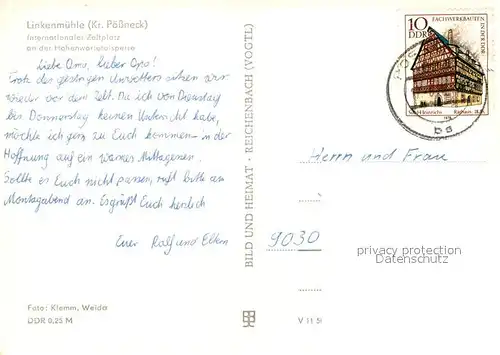 Linkenmühle (Kr. Pößneck)
Internationaler Zeltplatz
an der Hohenwartetalsperre
Liebe Oma, lieber Opa!
Trotz des gestrigen Unwetters sitzen wir
wieder vor dem Zelt. Da ich von Dienstag
bis Donnerstag keinen Unterricht habe,
möchte ich gern zu Euch kommen – in der
Hoffnung auf ein warmes Mittagessen.
Sollte es Euch nicht passen, ruft bitte am
Montagabend an. Es grüßt Euch herzlich
Euer Ralf und Eltern
Foto: Klemm, Weida
DDR 0,25 M
BILD UND HEIMAT · REICHENBACH (VOGTL)
V 11 5
10
DDR
FACHWERKBAUTEN
IN DER DDR
Suhl-Heinrichs
Rathaus
ba
Herrn und Frau
9030
privacy protection
Datenschutz